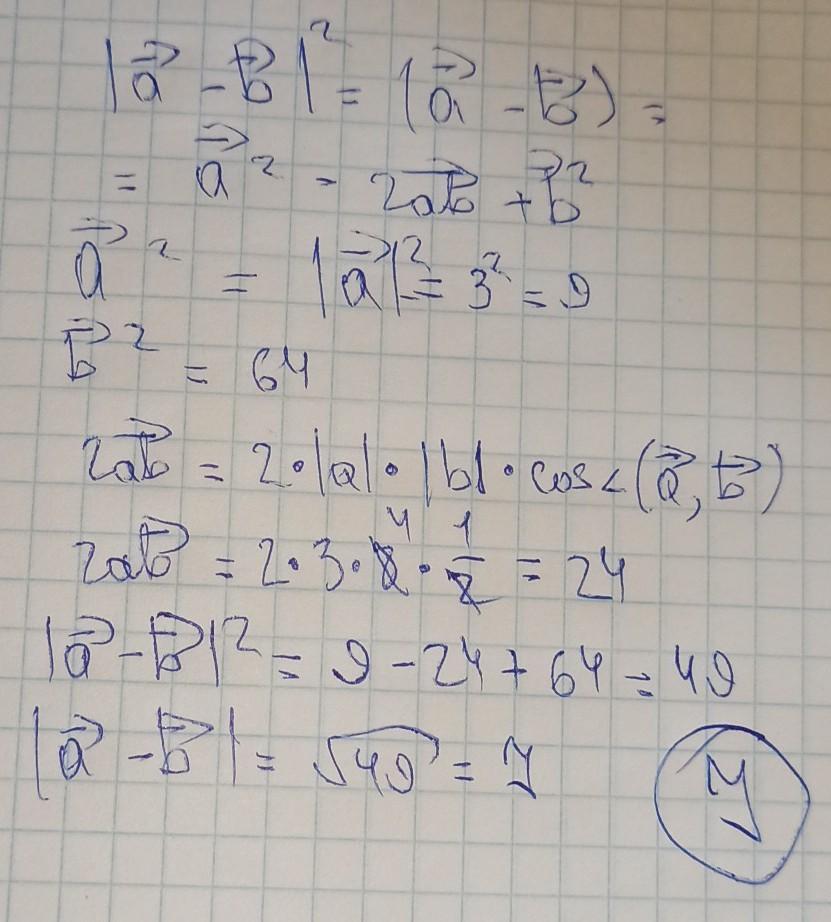 |a⃗ - b⃗|² = (a⃗ - b⃗) =
= a⃗² - 2ab⃗ + b⃗²
a⃗² = |a⃗|² = 3² = 9
b⃗² = 64
2ab⃗ = 2·|a|·|b|·cos<(a⃗, b⃗)
2ab⃗ = 2·3·8̸ 4·1/2̸ = 24
|a⃗ - b⃗|² = 9 - 24 + 64 = 49
|a⃗ - b⃗| = √49 = 7
7